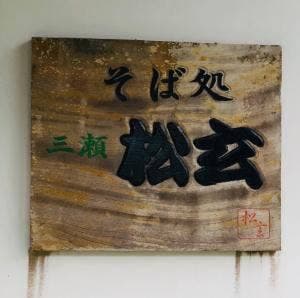 そば処
三瀬 松玄
松玄